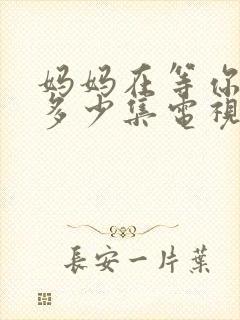 妈妈在等你
多少集電視
長安一片葉